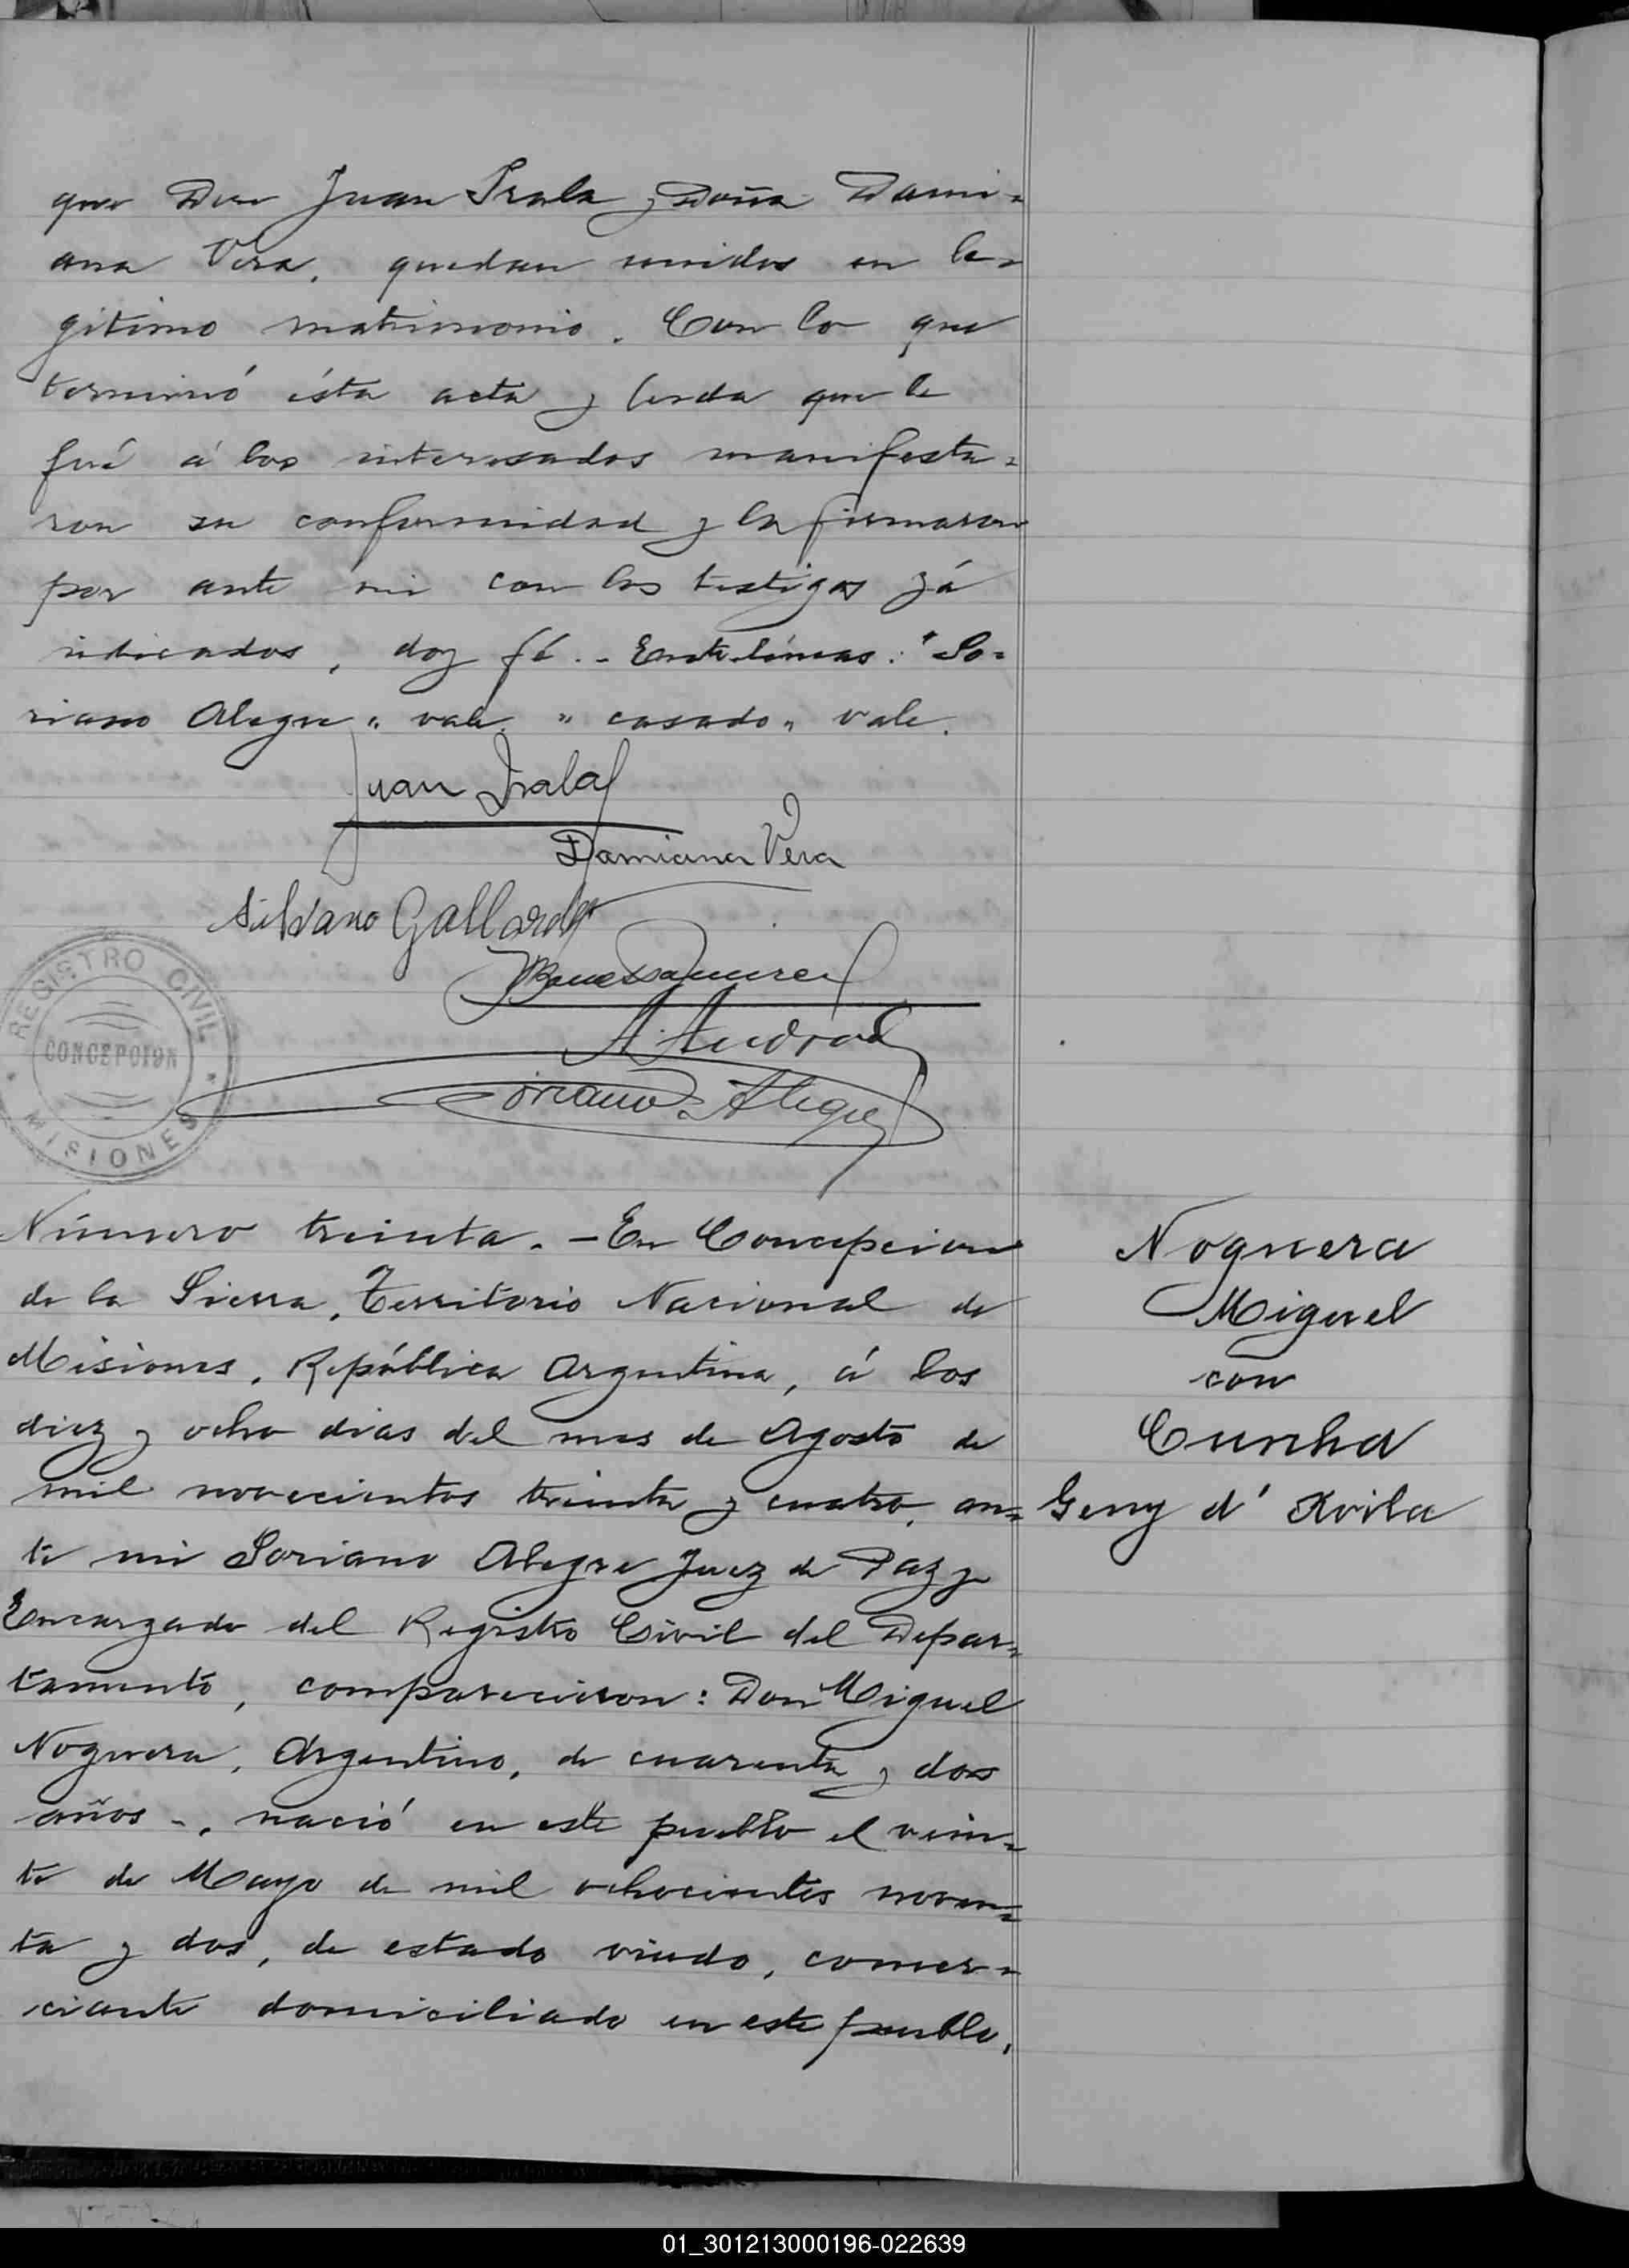 que Don Juan Irala y Doña Dami=
ana Vera, quedan unidos en le=
gitimo matrimonio. Con lo que
terminó ésta acta y leida que le
fué á los interesados manifesta=
ron su conformidad y la firmaron
por ante mi con los testigos yá
indicados, doy fé.- Entrelíneas: "So=
riano Alegre" vale. "casado" vale.
Juan Irala
Damiana Vera
Silvano Gallardo
A. Andrad
Soriano Alegre
REGISTRO CIVIL
CONCEPCION
MISIONES
Número treinta.-En Concepcion
de la Sierra, Territorio Nacional de
Misiones, República Argentina, á los
diez y ocho dias del mes de Agosto de
mil novecientos treinta y cuatro, an=
te mi Soriano Alegre Juez de Paz y
Encargado del Registro Civil del Depar=
tamento, comparecieron: Don Miguel
Noguera, Argentino, de cuarenta y dos
años-, nació en este pueblo el vein=
te de Mayo de mil ochocientos noven=
ta y dos, de estado viudo, comer=
ciante domiciliado en este pueblo,
Noguera
Miguel
con
Cunha
Geny d' Avila
01_301213000196-022639